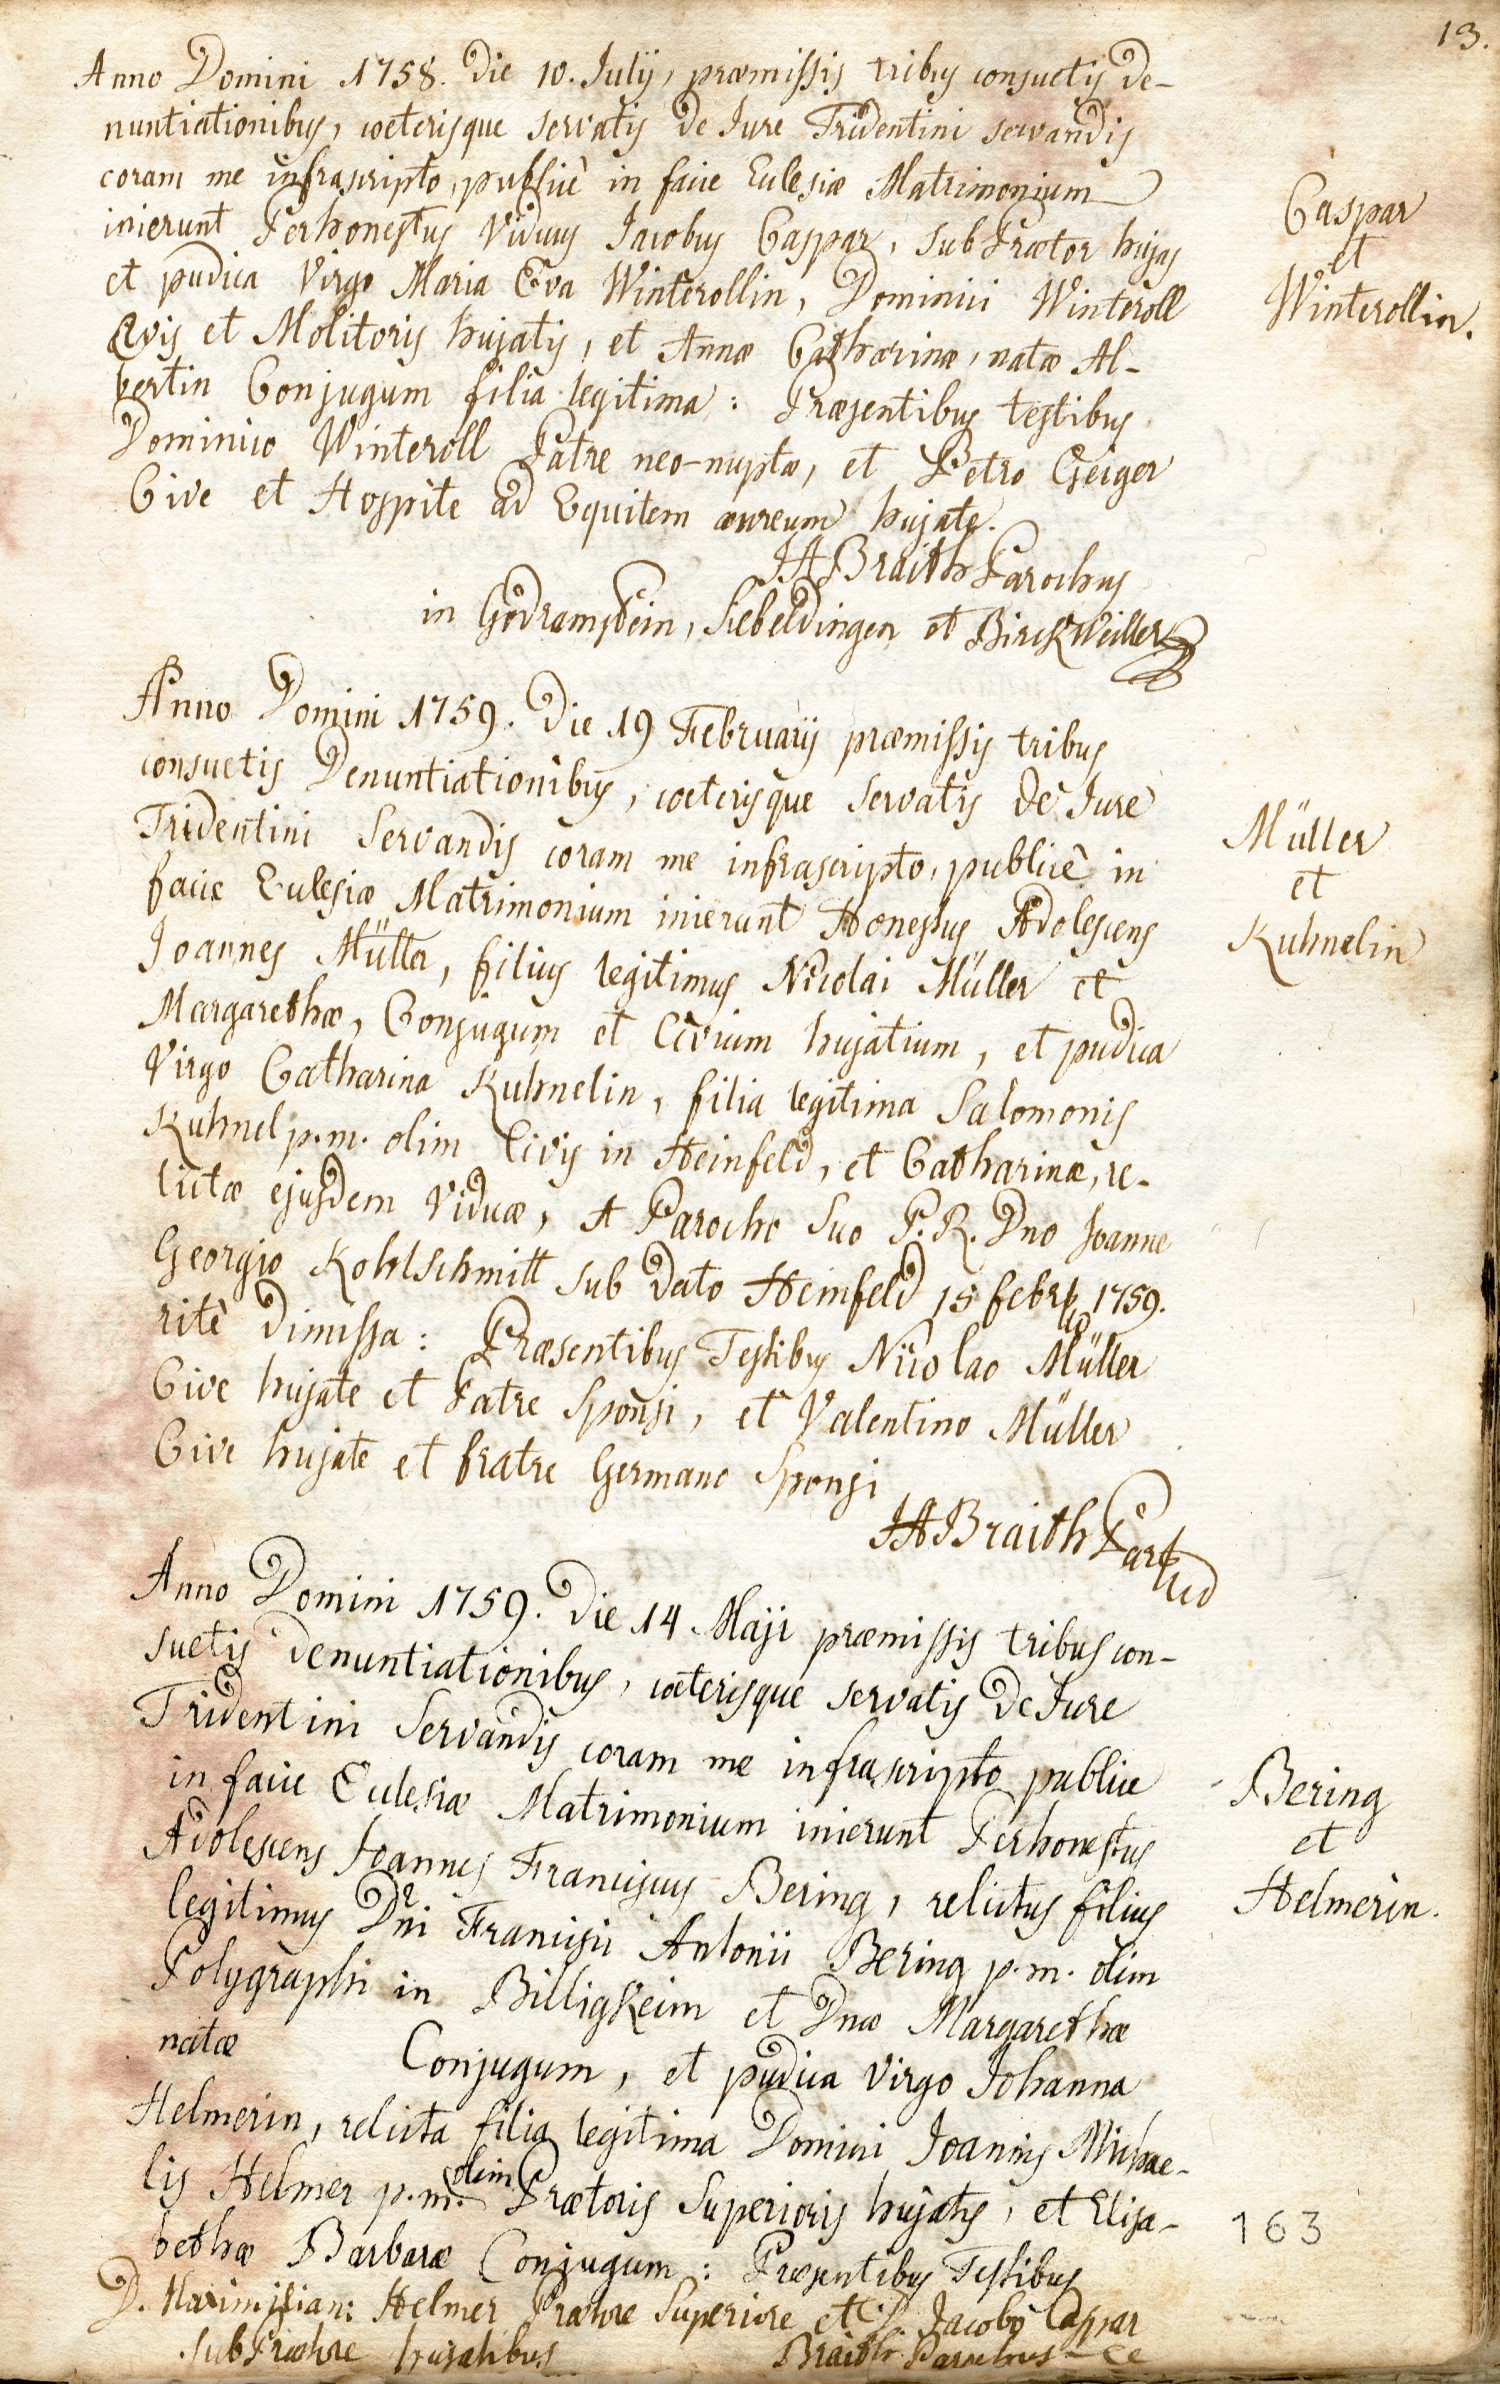 13.
Anno Domini 1758. Die 10. Julij, præmissis tribus consuetis De-
nuntiationibus, cæterisque servatis de Jure Tridentini servandis
coram me infrascripto, publicè in facie Ecclesiæ Matrimonium
inierunt Perhonestus Viduus Jacobus Caspar, SubPrætor hujas
et pudica Virgo Maria Eva Winterollin, Dominici Winteroll
Civis et Molitoris hujatis, et Annæ Catharinæ, natæ Al-
bertin Conjugum filia legitima: Præsentibus testibus
Dominico Winteroll Patre neo-nuptæ, et Petro Geiger
Cive et Hospite ad Equitem aureum hujate.
JABraith Parochus
in Godramstein, Siebeldingen et BirckWeiller
Caspar
et
Winterollin.
Anno Domini 1759. Die 19 Februarij præmissis tribus
consuetis Denuntiationibus, cæterisque servatis de Jure
Tridentini Servandis coram me infrascripto, publicè in
facie Ecclesiæ Matrimonium inierunt Honestus Adolescens
Joannes Müller, filius legitimus Nicolai Müller et
Margarethæ, Conjugum et Civium hujatium, et pudica
Virgo Catharina Kuhnelin, filia legitima Salomonis
Kuhnel p.m. olim Civis in Heinfeld, et Catharinæ, re-
lictæ ejusdem Viduæ, A Parocho Suo P. R. Dno Joanne
Georgio Kohlschmitt sub Dato Heinfeld 15 febr 1759.
ritè Dimissa: Præsentibus Testibus Nicolao Müller
Cive hujate et Patre Sponsi, et Valentino Müller
Cive hujate et fratre Germano Sponsi
JABraith Par
Müller
et
Kuhnelin
Anno Domini 1759. Die 14 Maji præmissis tribus con-
suetis denuntiationibus, cæterisque servatis De Jure
Tridentini Servandis coram me infrascripto publice
in facie Ecclesiæ Matrimonium inierunt Perhonestus
Adolescens Joannes Franciscus Bering, relictus filius
legitimus Dni Francisci Antonii Bering p.m. olim
Polygraphi in Billigheim et Dnæ Margarethæ
natæ Conjugum, et pudica Virgo Johanna
Helmerin, relicta filia legitima Domini Joannis Michae-
lis Helmer p.m. olim Prætoris Superioris hujatis, et Elisa-
bethæ Barbaræ Conjugum: Præsentibus Testibus
D. Maximilian: Helmer Prætore Superiore et Jacobo Caspar
SubPrætore hujatibus Braith Parochus
Bering
et
Helmerin.
163